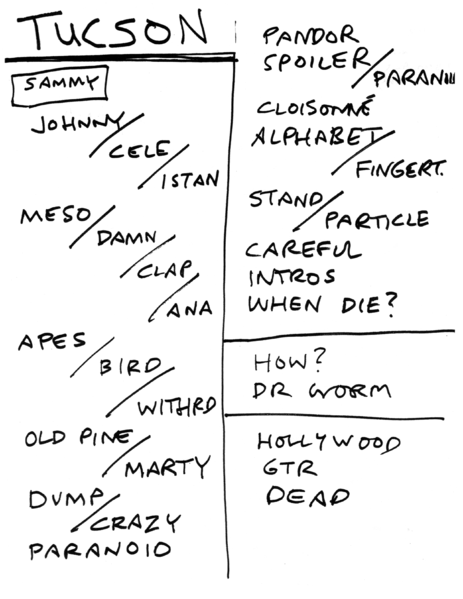 TUCSON
SAMMY
JOHNNY/
CELE/
ISTAN
MESO/
DAMN/
CLAP/
ANA
APES/
BIRD/
WITHRD
OLD PINE/
MARTY
DUMP/
CRAZY
PARANOID
PANDOR
SPOILER/
CLOISONNÉ
ALPHABET/
FINGERT.
STAND/
PARTICLE
CAREFUL
INTROS
WHEN DIE?
HOW?
DR WORM
HOLLYWOOD
GTR
DEAD